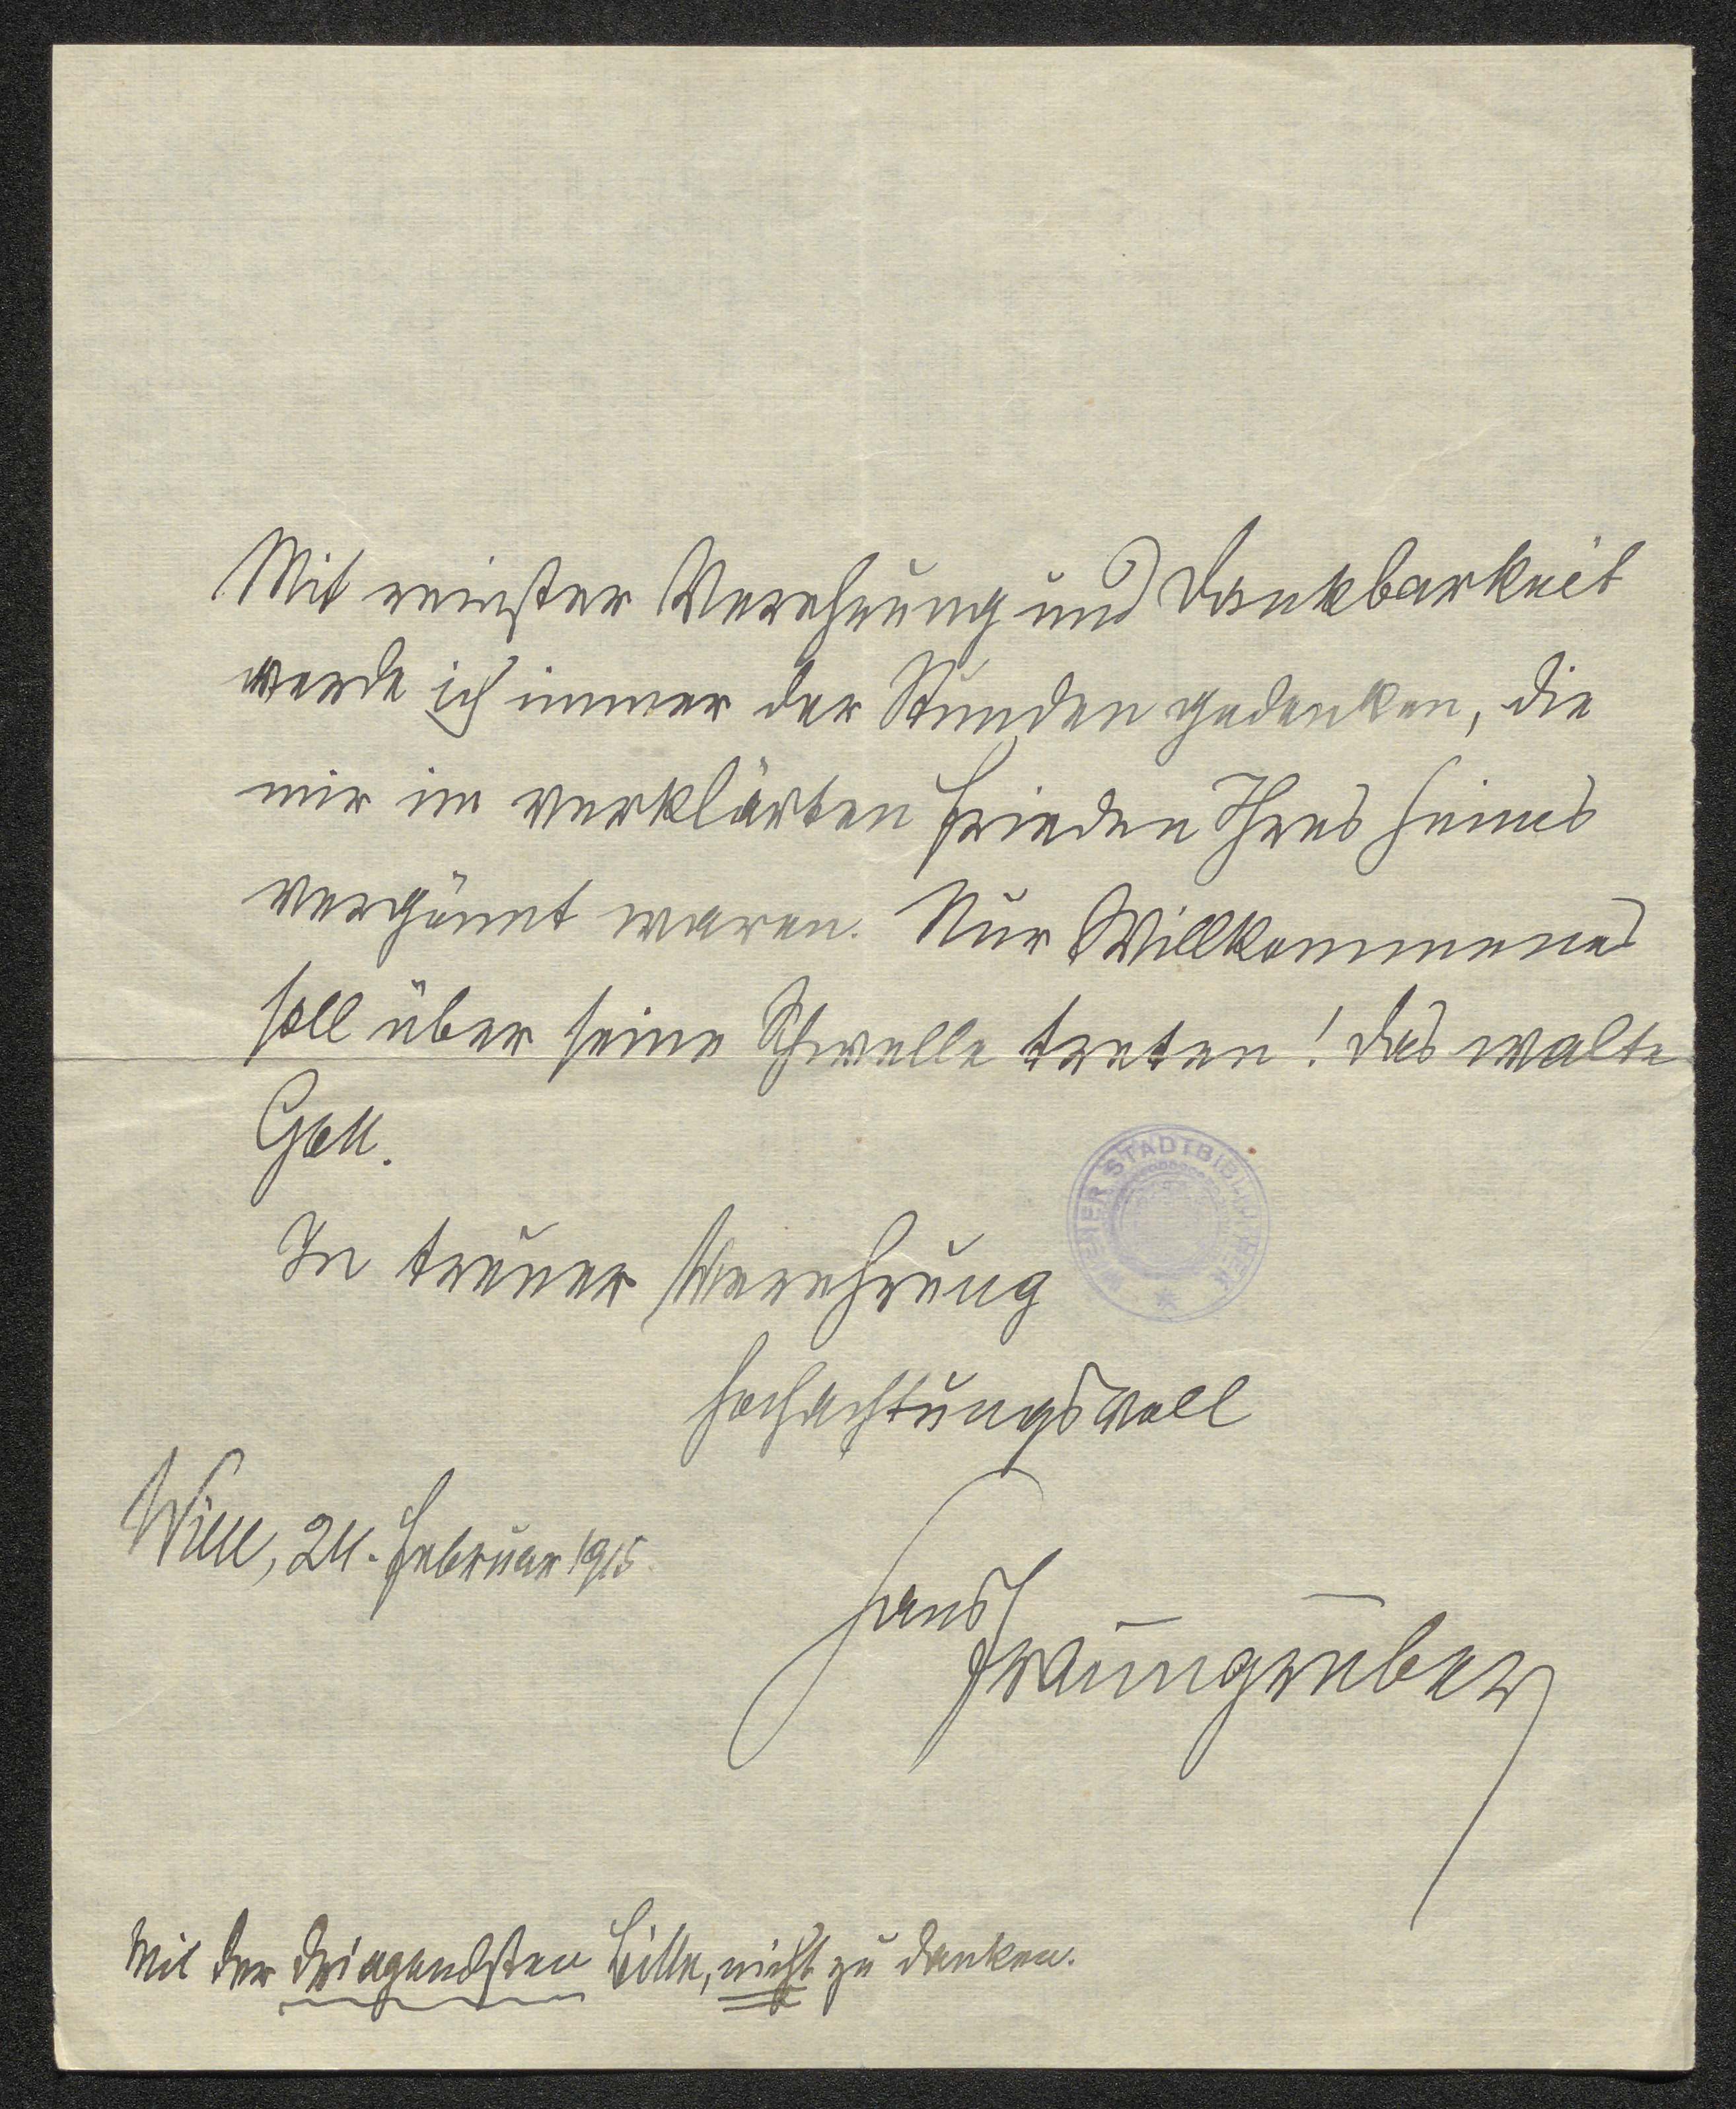 Mit reinster Verehrung und Dankbarkeit
werde ich immer der Stunden gedenken, die
mir im verklärten Frieden Ihres Heims
vergönnt waren. Nur Willkommenes
soll über seine Schwelle treten! Das walte
Gott.
In treuer Verehrung
hochachtungsvoll
Wien, 24. Februar 1915.
Hans
Fraungruber
Mit der dringendsten Bitte, nicht zu danken.
WIENER STADTBIBLIOTHEK